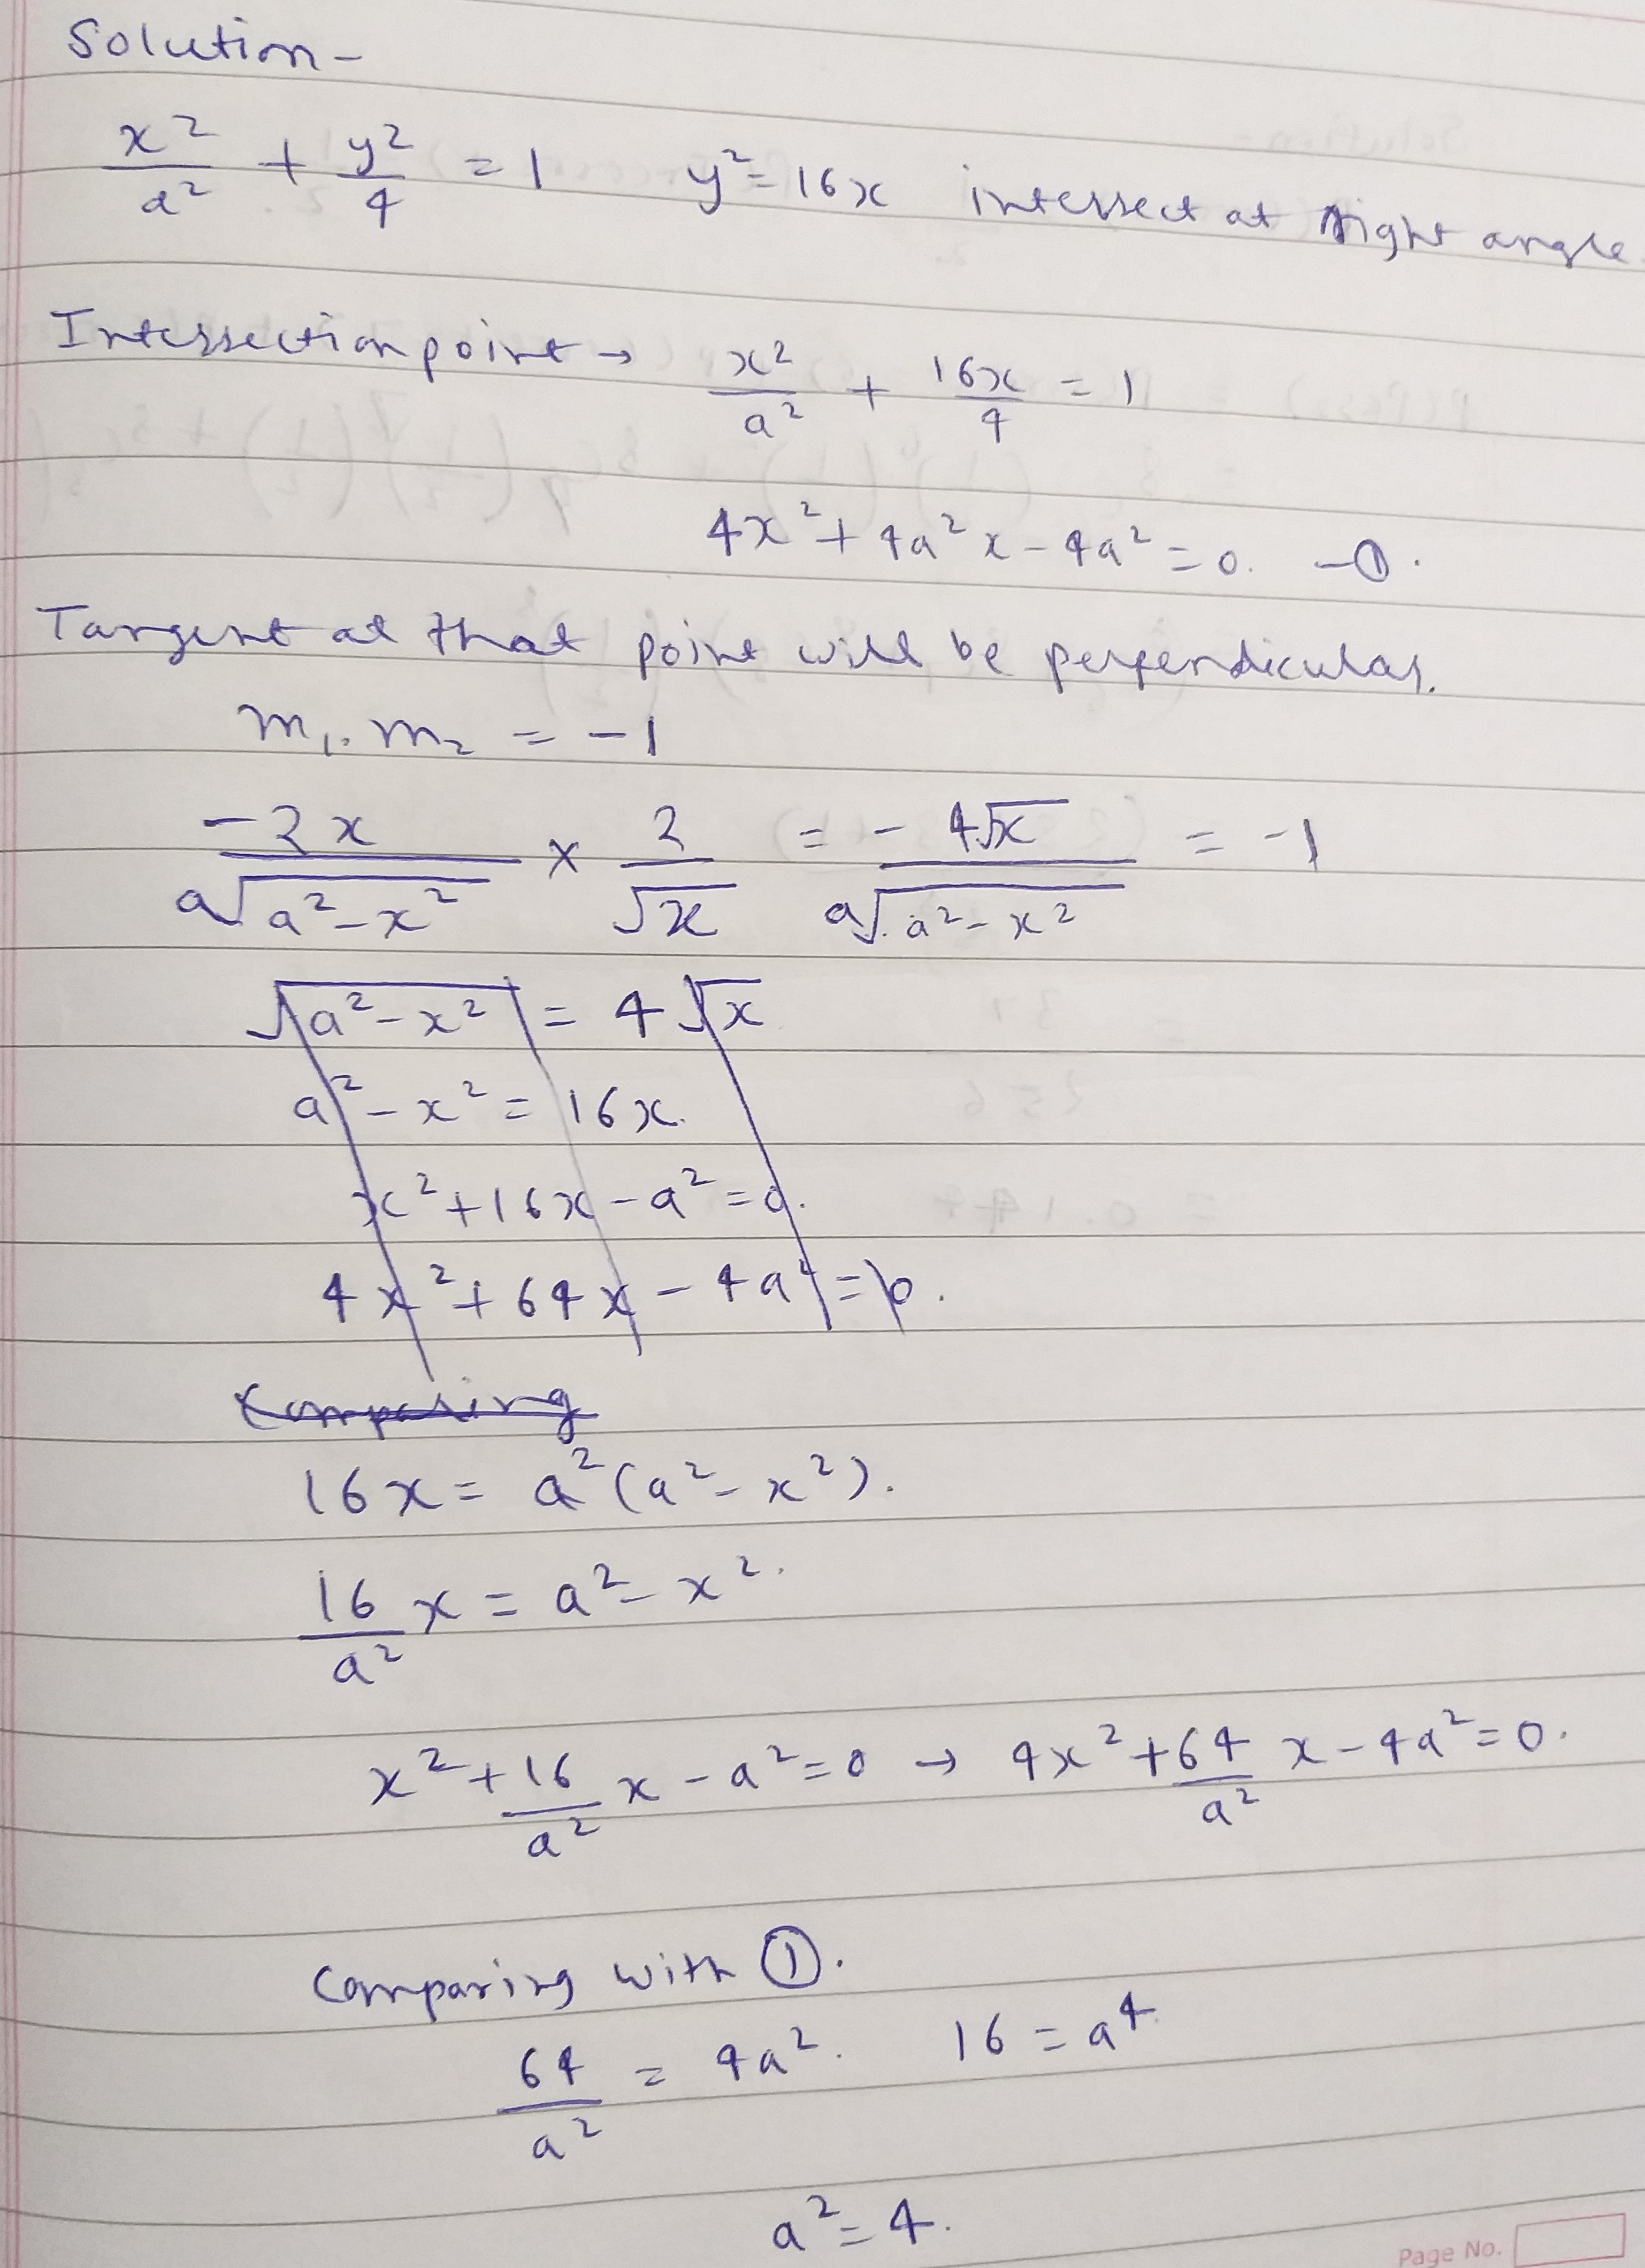 Solution -
x²/a² + y²/4 = 1   y² = 16x   intersect at right angle.
Intersection point → x²/a² + 16x/4 = 1
4x² + 4a²x - 4a² = 0. - ①.
Tangent at that point will be perpendicular.
m₁. m₂ = -1
-2x/a√(a²-x²) × 2/√x = -4√x/a√(a²-x²) = -1
√(a²-x²) = 4√x
a² - x² = 16x.
x² + 16x - a² = 0.
4x² + 64x - 4a² = 0.
Comparing
16x = a²(a² - x²).
16/a² x = a² - x².
x² + 16/a² x - a² = 0 → 4x² + 64/a² x - 4a² = 0.
Comparing with ①.
64/a² = 4a².   16 = a⁴.
a² = 4.
Page No.